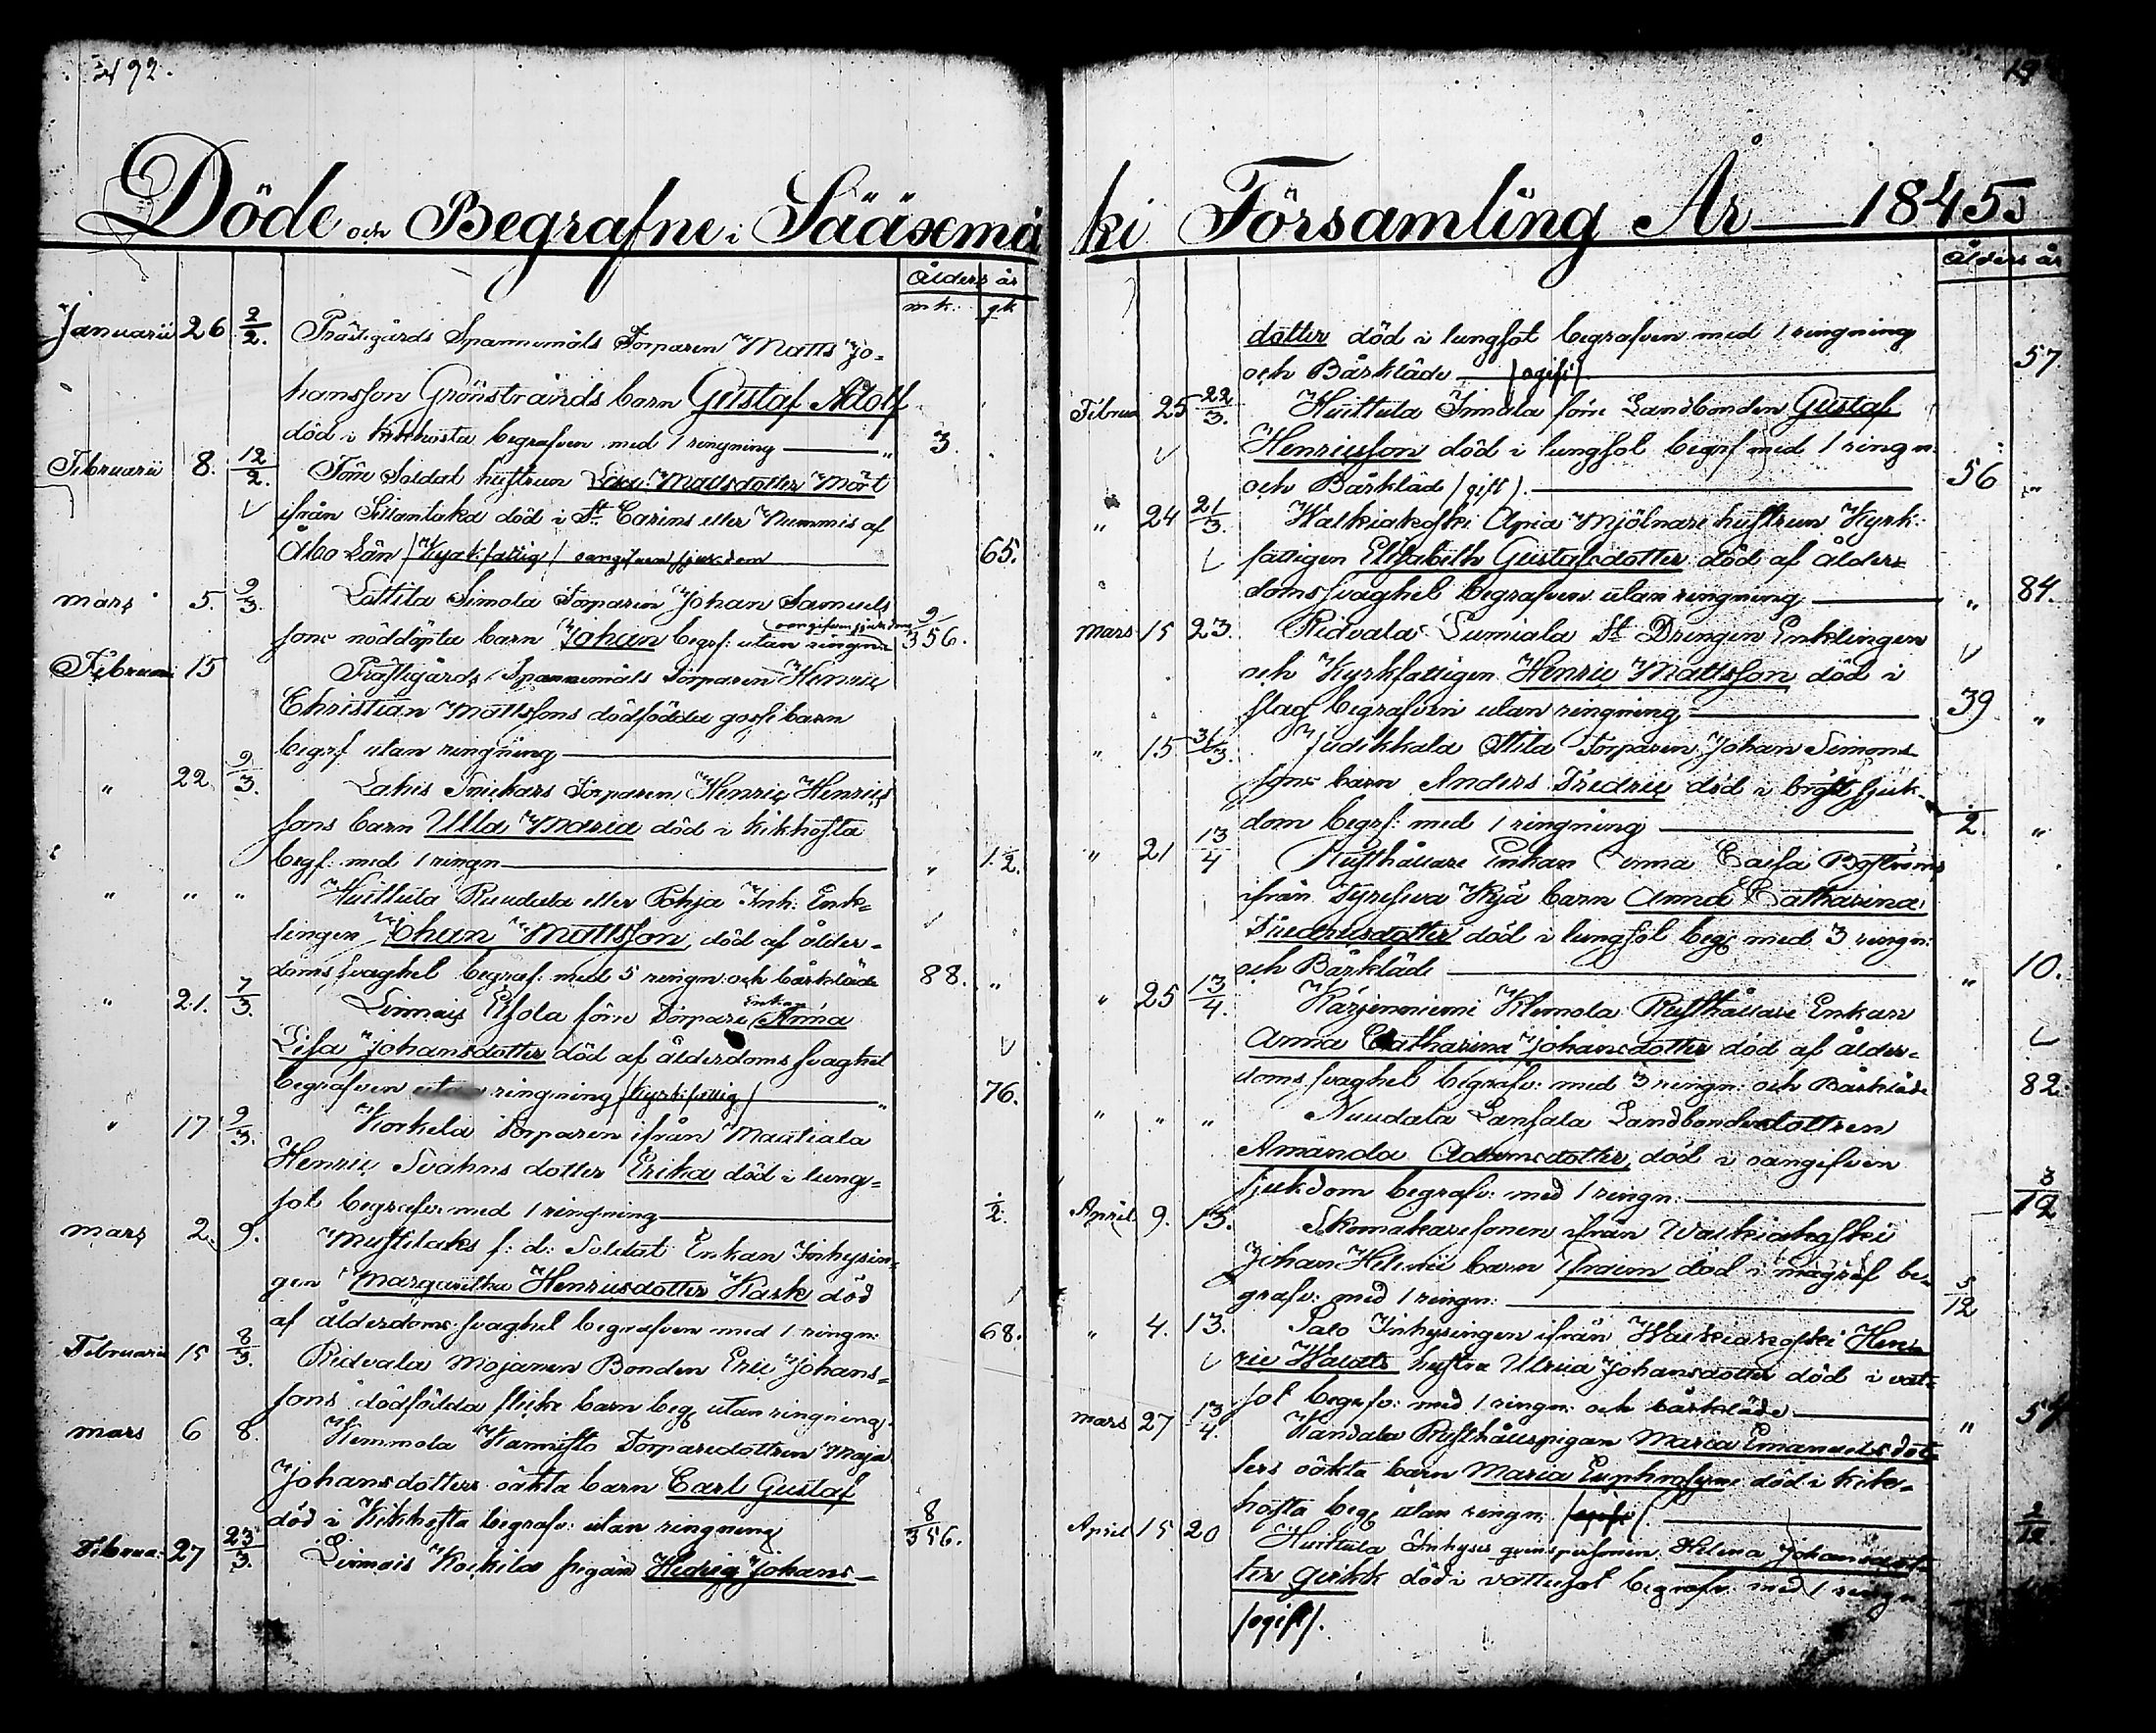 492.
Döde och Begrafne i Sääxemä
Ålders år
mk. qk.
Januarii 26 2/2. Prästgårds Spannemåls Torparen Matts Jo-
hansson Grönstrands barn Gustaf Adolf
död i Kikhosta begrafven med 1 ringning — 3.
Februarii 8. 12/2. Förre Soldat hustrun Mattsdotter Mört
ifrån död i St. Carins eller Nummis af
Åbo Län /Kyrk fattig/ oangifven sjukdom 65.
Mars 5. 9/3. Lottila Simola Torparen Johan Samuels
oangifven sjukdom
sons nöddöpta barn Johan begrf: utan ringn: 9/356.
Februari 15 Prästgårds Spannemåls Torparen Henric
Christian Mattssons dödfödda gosse barn
begrf utan ringning
" 22. 9/3. Lahis Torparen Henric Henrics
sons barn Ulla Maria död i Kikhosta
begf: med 1 ringn — " 1 1/2.
" " " Huittula Ruudala eller Pohja Inh: Enk-
lingen Johan Mattsson, död af ålder-
doms svaghet begraf: med 5 ringn: och bårkläde 88. "
" 21. 7/3. Linnais Esola förre Torpare Enkan Anna
Lisa Johansdotter död af ålderdoms svaghet
begrafven utan ringning /Kyrk fattig/ — " 76.
" 17 9/3. Korkela Torparen ifrån Mautiala
Henric Svahns dotter Erika död i lung-
sot begrafv: med 1 ringning — 1/2.
Mars 2. 9. f: d: Soldat Enkan Inhysin-
gen Margaretha Henricsdotter Kark död
af ålderdoms svaghet begrafven med 1 ringn: 68.
Februarii 15 8/3. Ridvala Mojanen Bonden Eric Johans-
sons dödfödda flicke barn beg utan ringning.
Mars 6 8. Kemmola Kannisto Torparedottren Maja
Johansdotters oäkta barn Carl Gustaf
död i Kikhosta begrafv: utan ringning 8/356.
Februa: 27 23/3. Linnais Kockila pigan Hedvig Johans-
ki Församling År — 1845
Ålders år
dotter död i lungsot begrafven med 1 ringning
och Bårkläde — /ogift/ 57
Februa 25 22/3. Huittula Innala förre Landbonden Gustaf
Henricsson död i lungsot begrf med 1 ringn.
och Bårkläd /gift/. — 56 "
" 24 21/3. Walkiakoski Apia Mjölnare hustrun Kyrk:
fattigen Elisabeth Gustafsdotter död af ålder-
doms svaghet begrafven utan ringning — " 84.
Mars 15 23. Ridvala Sumiala St Drengen Enklingen
och Kyrkfattigen Henric Mattsson död i
slag begrafven utan ringning — 39 "
" 15 31/3. Judikkala Ottila Torparen Johan Simons
sons barn Anders Fredric död i bröst sjuk-
dom begrf: med 1 ringning — 1/2. "
" 21 13/4 Rusthållare Enkan Anna Caisa Boströms
ifrån Kyrö barn Anna Catharina
Fredricsdotter död i lungsot beg: med 3 ringn:
och Bårkläde — " 10.
" 25 13/4. Kärjenniemi Klemola Rusthållare Enkan
Anna Catharina Johansdotter död af ålder-
doms svaghet begrafv: med 3 ringn: och Bårkläde 82.
" " " Nuudala Lansala Landbondedottren
Amanda Adamsdotter, död i oangifven
sjukdom begrafv: med 1 ringn: — 3/12
April 9. 13. Skomakaresonen ifrån Walkiakoski
Johan barn Efraim död i be-
grafv: med 1 ringn: — 5/12
" 4. 13. Salo Inhysingen ifrån Walkiakoski Hen-
ric hustru Ulrica Johansdotter död i vat-
sot begrafv: med 1 ringn: och bårkläde — " 54
Mars 27 13/4. Kandala Rusthållspigan Maria Emanuelsdot-
ters oäkta barn Maria Euphrosyne död i kik-
hosta beg utan ringn: — 2/12
April 15 20 Huittula Inhyses qvinspersonen Helena Johansdot-
ter död i vattusot begrafv: med 1 ringn
/ogift/.